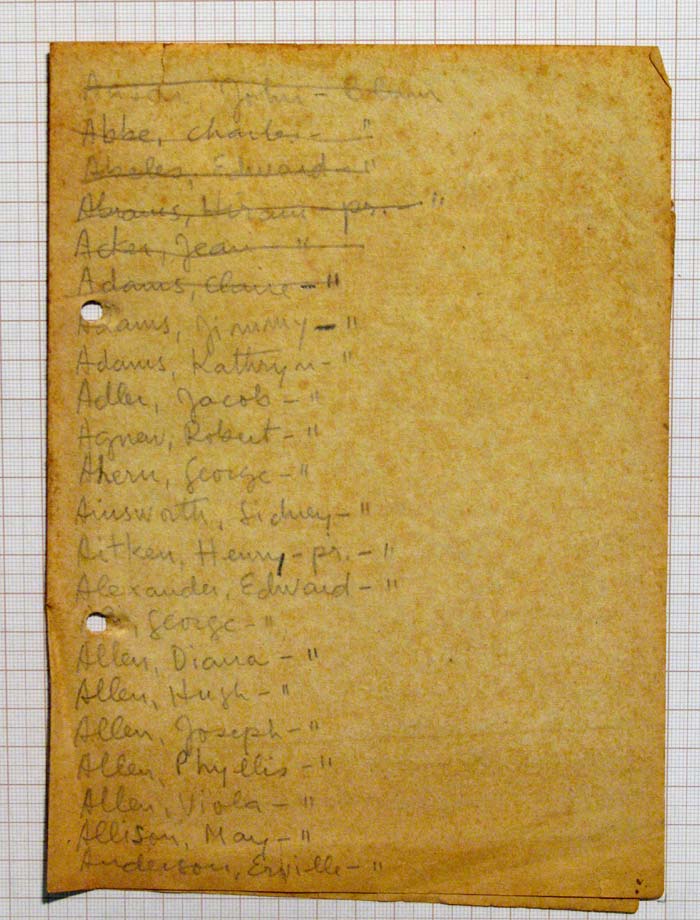 John -
Abbe, Charles - "
Abeles, Edward - "
Abrams, Hiram - pr. - "
Acker, Jean - "
Adams, Claire - "
Adams, Jimmy - "
Adams, Kathryn - "
Adler, Jacob - "
Agnew, Robert - "
Ahern, George - "
Ainsworth, Sidney - "
Aitken, Henry - pr. - "
Alexander, Edward - "
, George - "
Allen, Diana - "
Allen, Hugh - "
Allen, Joseph - "
Allen, Phyllis - "
Allen, Viola - "
Allison, May - "
Anderson, Erville - "